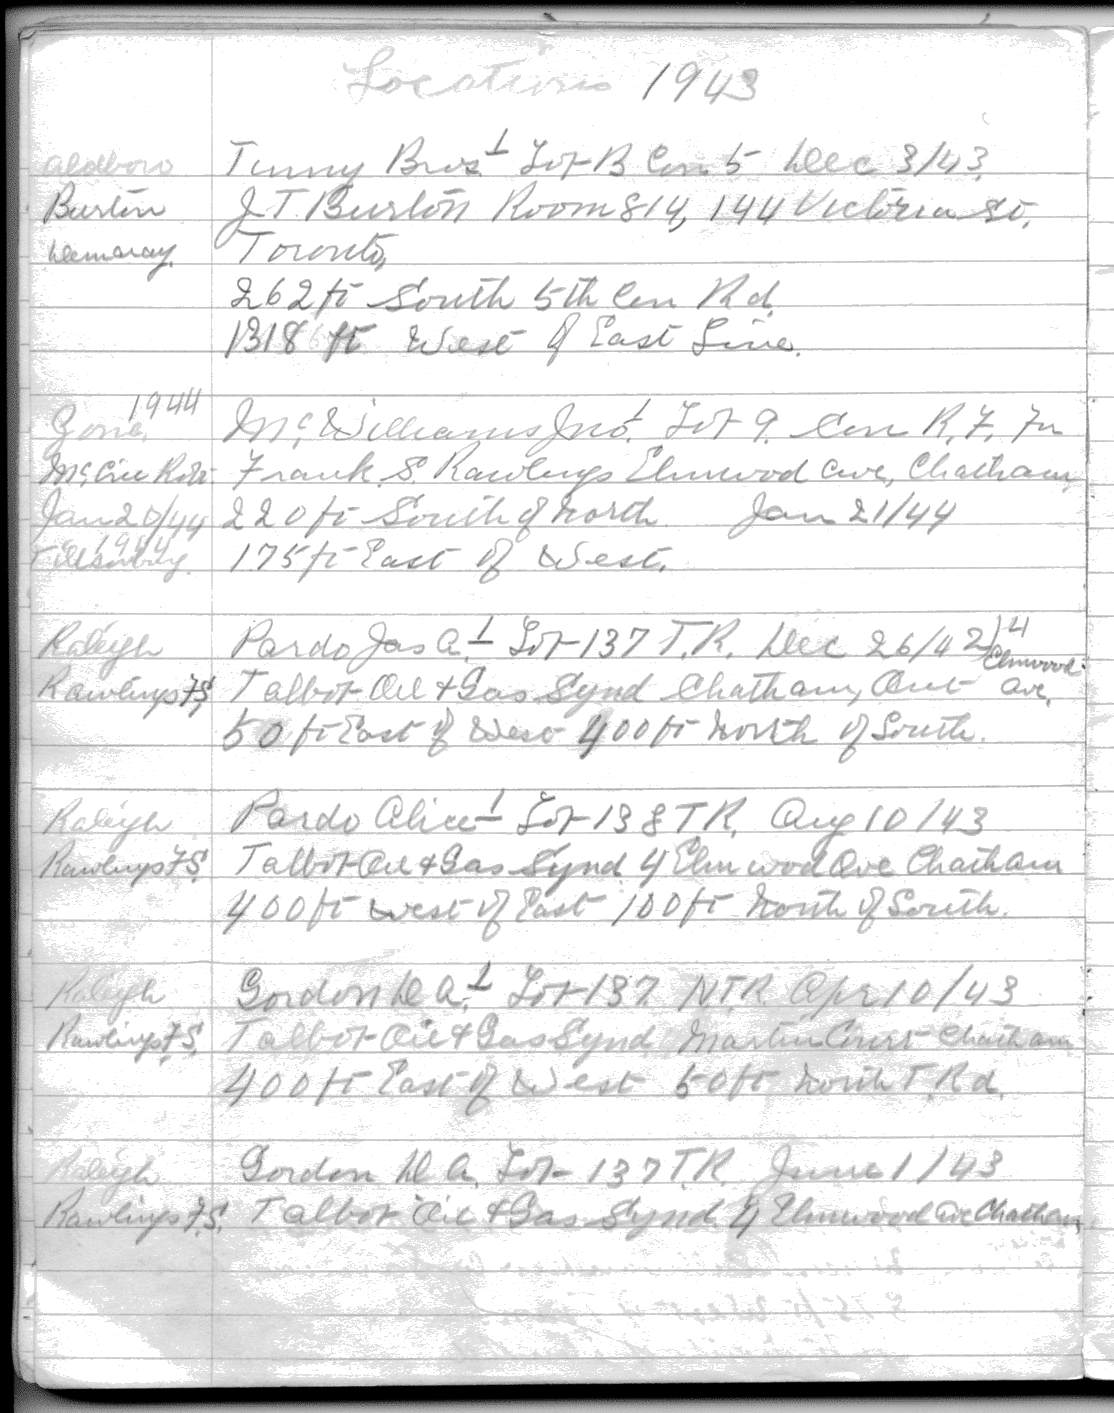 Locations 1943
Aldboro Tunny Bros. 1 Lot B Con 5 Dec 3/43
Burton J T Burton Room 814, 144 Victoria St,
Demaray. Toronto,
262 ft South 5th Con Rd.
1318 ft West of East Line.
1944
Zone. McWilliams Jno. 1 Lot 9. Con R. F. For
Frank S. Rawlings Elmwood Ave, Chatham,
Jan 20/44 220 ft South of North Jan 21/44
1944
Tillsonburg. 175 ft East of West.
Raleigh Pardo Jas A. 1 Lot 137 T.R. Dec 26/42 14
Elmwood
Rawlings F.S. Talbot Oil & Gas Synd Chatham, Ont Ave.
50 ft East of West 400 ft North of South.
Raleigh Pardo Alice 1 Lot 138 T R. Aug 10/43
Rawlings F.S. Talbot Oil & Gas Synd 4 Elmwood Ave Chatham
400 ft West of East 100 ft North of South.
Raleigh Gordon D A. 1 Lot 137 N.T.R. Apr 10/43
Rawlings F.S. Talbot Oil & Gas Synd Martin Court Chatham
400 ft East of West 50 ft North T. Rd.
Raleigh Gordon D A. Lot 137 T.R. June 1/43
Rawlings F.S. Talbot Oil & Gas Synd. 4 Elmwood Ave Chatham,